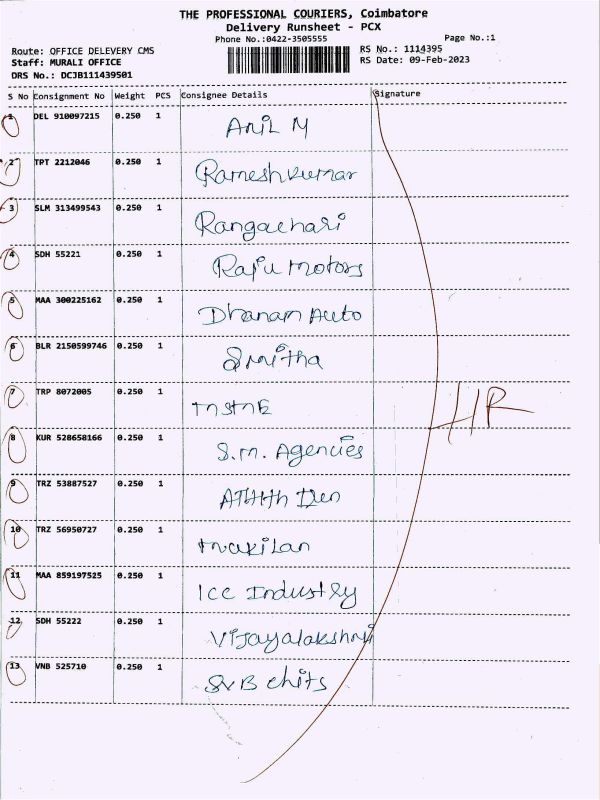 THE PROFESSIONAL COURIERS, Coimbatore
Delivery Runsheet - PCX
Phone No.:0422-3505555
Page No.:1
Route: OFFICE DELEVERY CMS
RS No.: 1114395
Staff: MURALI OFFICE
RS Date: 09-Feb-2023
DRS No.: DCJB111439501
S No Consignment No Weight PCS Consignee Details Signature
1 DEL 910097215 0.250 1 Anil M
2 TPT 2212046 0.250 1 Rameshkumar
3 SLM 313499543 0.250 1 Rangachari
4 SDH 55221 0.250 1 Raju Motors
5 MAA 300225162 0.250 1 Dhanam Auto
6 BLR 2150599746 0.250 1 Smitha
7 TRP 8072005 0.250 1
8 KUR 528658166 0.250 1 S.M. Agencies
9 TRZ 53887527 0.250 1
10 TRZ 56950727 0.250 1 Mukilan
11 MAA 859197525 0.250 1 Ice Industry
12 SDH 55222 0.250 1 Vijayalakshmi
13 VNB 525710 0.250 1 SVB chits